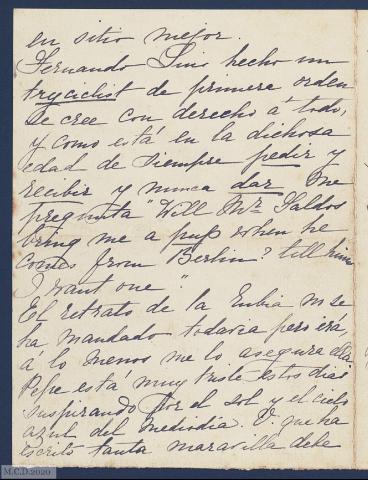 en sitio mejor.
Fernando Lino hecho un
tryciclist de primera orden
se cree con derecho á todo,
y como está en la dichosa
edad de siempre pedir y
recibir y nunca dar me
pregunta "Will Mr Galdos
bring me a pup when he
comes from Berlin? tell him
I want one."
El retrato de la Rubia no se
ha mandado todavia pero irá,
á lo menos me lo asegura ella
Pepe está muy triste estos dias
suspirando por el sol y el cielo
azul del mediodia. V. que ha
escrito tanta maravilla debe
M.C.D. 2020